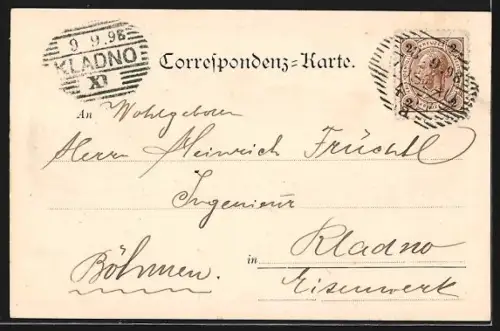 9 9.98
KLADNO
XI
Correspondenz=Karte.
2 2
9 98
2 2
An Wohlgeboren
Herrn Heinrich Früchtl
Ingenieur
in Kladno
Böhmen.
Eisenwerk